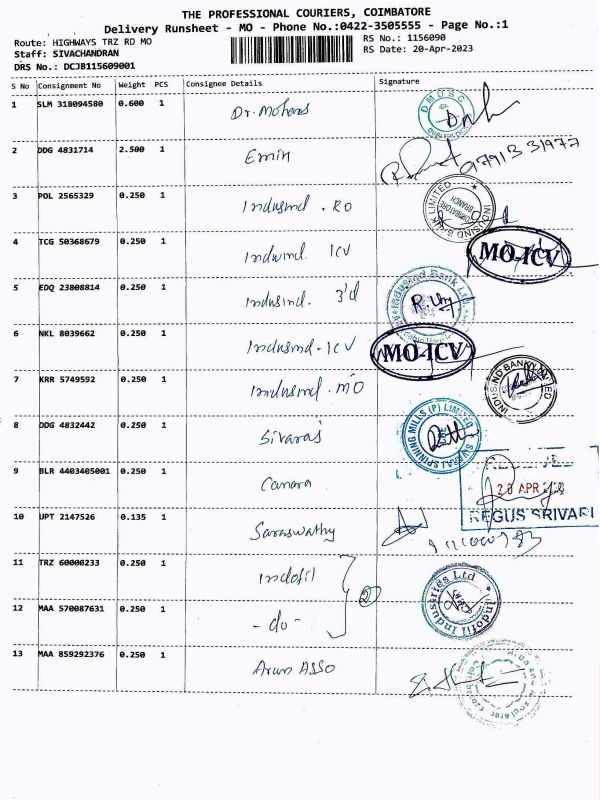 THE PROFESSIONAL COURIERS, COIMBATORE
Delivery Runsheet - MO - Phone No.:0422-3505555 - Page No.:1
Route: HIGHWAYS TRZ RD MO
RS No.: 1156090
Staff: SIVACHANDRAN
RS Date: 20-Apr-2023
DRS No.: DCJB115609001
S No Consignment No Weight PCS Consignee Details Signature
1 SLM 318094580 0.600 1 Dr. Mohans
DMDSC
2 DDG 4831714 2.500 1 Emin
9791331977
3 POL 2565329 0.250 1 Indusind . RO
INDUSIND BANK LIMITED
COIMBATORE BRANCH
4 TCG 50368679 0.250 1 Indusind. ICV
MO-ICV
5 EDQ 23808814 0.250 1 Indusind. 3'd
Indusind Bank Ltd
6 NKL 8039662 0.250 1 Indusind - ICV
MO-ICV
7 KRR 5749592 0.250 1 Indusind . MO
INDUSIND BANK LIMITED
8 DDG 4832442 0.250 1 Sivaraj
SPINNING MILLS (P) LIMITED
9 BLR 4403405001 0.250 1 Canara
20 APR
REGUS SRIVARI
10 UPT 2147526 0.135 1 Saraswathy
11 TRZ 60000233 0.250 1 Indofil
2
Indofil Industries Ltd
12 MAA 570087631 0.250 1 - do -
13 MAA 859292376 0.250 1 Arun ASSO